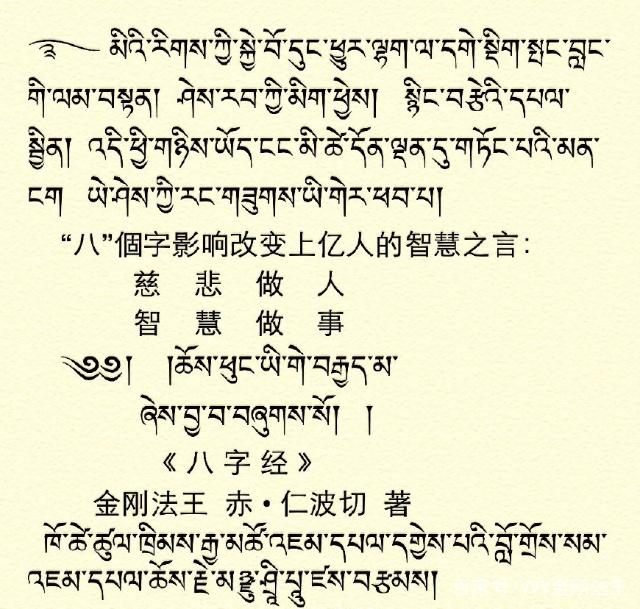 ༄ མིའི་རིགས་ཀྱི་སྐྱེ་བོ་དུང་ཕྱུར་ལྷག་ལ་དགེ་སྡིག་སྤང་བླང་
གི་ལམ་བསྟན། ཤེས་རབ་ཀྱི་མིག་ཕྱེས། སྙིང་བརྩེའི་དཔལ་
སྦྱིན། འདི་ཕྱི་གཉིས་ཡོད་ངང་མི་ཚེ་དོན་ལྡན་དུ་གཏོང་པའི་མན་
ངག ཡེ་ཤེས་ཀྱི་རང་གཟུགས་ཡི་གེར་ཕབ་པ།
“八”個字影响改变上亿人的智慧之言：
慈 悲 做 人
智 慧 做 事
༄༅། །ཆོས་ཕུང་ཡི་གེ་བརྒྱད་མ་
ཞེས་བྱ་བ་བཞུགས་སོ། །
《八字经》
金刚法王 赤·仁波切 著
ཁོ་ཚེ་ཚུལ་ཁྲིམས་རྒྱ་མཚོ་འཇམ་དཔལ་དགྱེས་པའི་བློ་གྲོས་སམ་
འཇམ་དཔལ་ཆོས་རྗེ་ཤྲཱི་ཛས་བརྩམས།